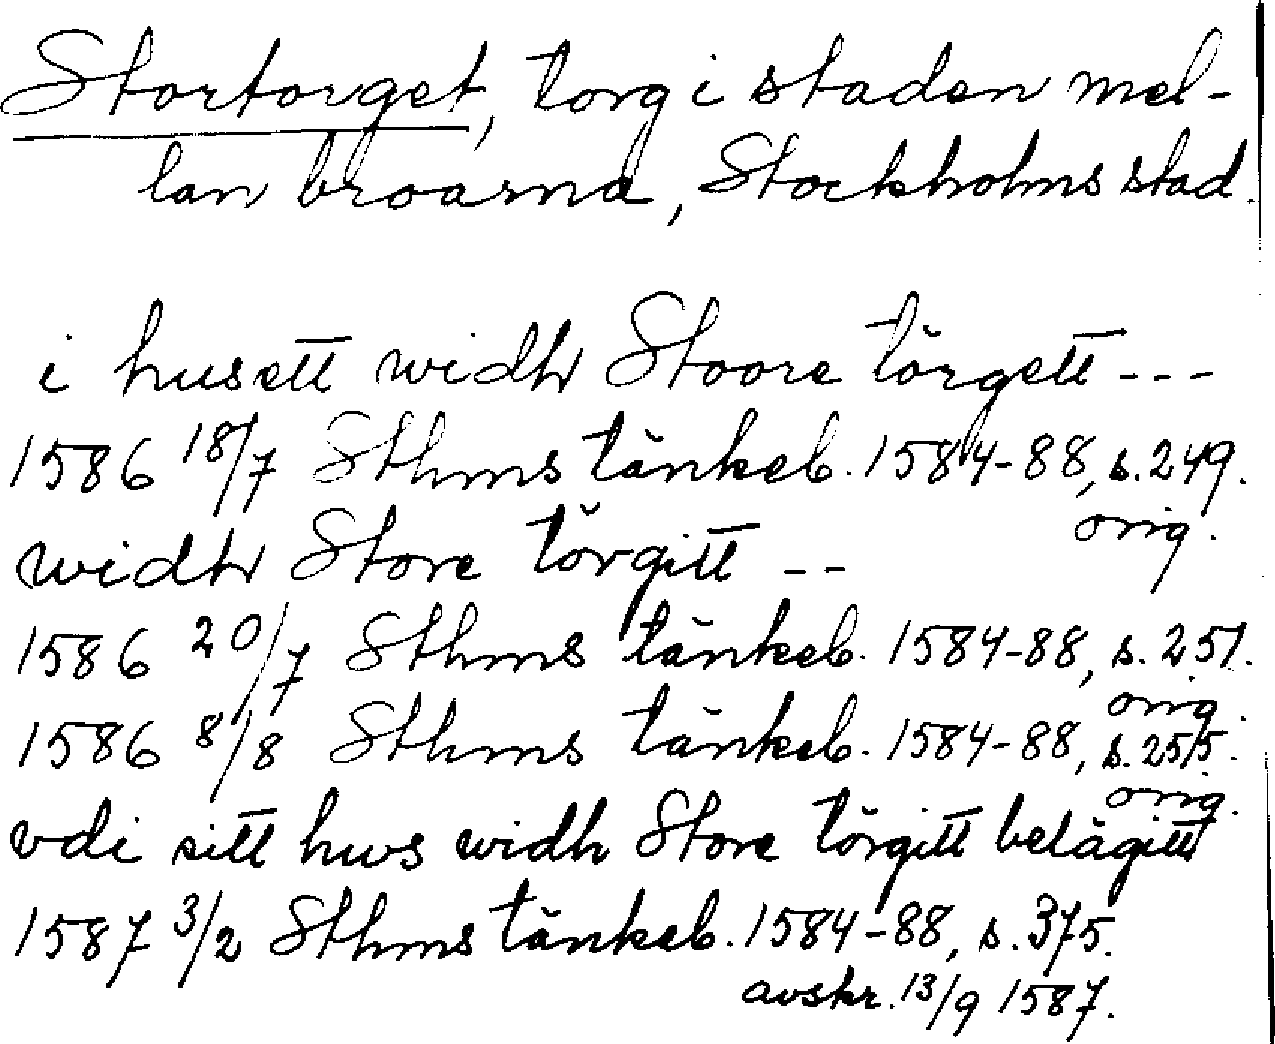 Stortorget, torg i staden mel-
lan broarna, Stockholms stad.
i husett widh Stoore törgett ---
1586 18/7 Sthms tänkeb. 1584-88, s. 249.
orig.
widh Store törgitt --
1586 20/7 Sthms tänkeb. 1584-88, s. 251.
orig.
1586 8/8 Sthms tänkeb. 1584-88, s. 255.
orig.
vdi sitt hws widh Store törgitt belägitt
1587 3/2 Sthms tänkeb. 1584-88, s. 375.
avskr. 13/9 1587.